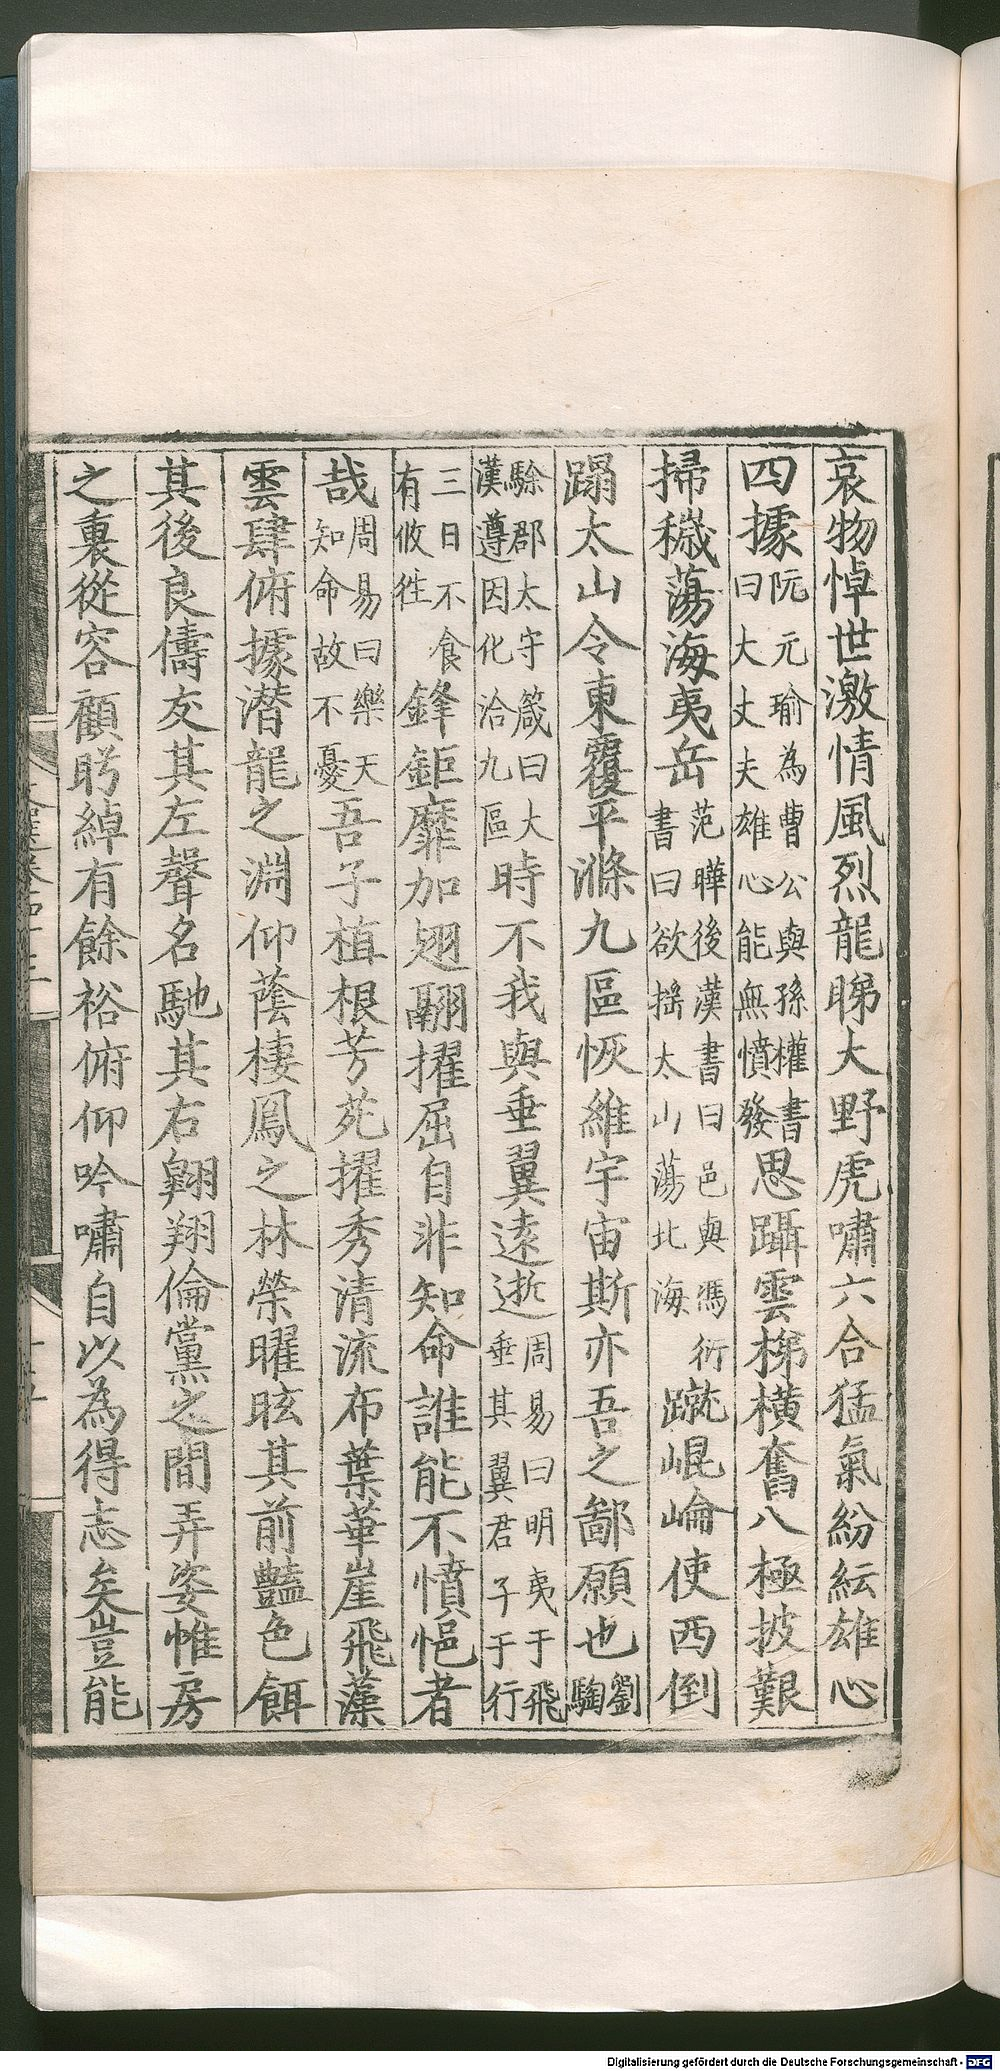 哀物悼世激情風烈龍睇大野虎嘯六合猛氣紛紜雄心
四據阮元瑜為曹公與孫權書曰大丈夫雄心能無憤發思躡雲梯橫奮八極披艱
掃穢蕩海夷岳范曄後漢書曰邑與馮衍書曰欲搖太山蕩北海蹴崐崘使西倒
蹋太山令東覆平滌九區恢維宇宙斯亦吾之鄙願也劉騊
駼郡太守箴曰大漢遵因化洽九區時不我與垂翼遠逝周易曰明夷于飛垂其翼君子于行
三日不食有攸往鋒鉅靡加翅翮擢屈自非知命誰能不憤悒者
哉周易曰樂天知命故不憂吾子植根芳苑擢秀清流布葉華崖飛藻
雲肆俯據潛龍之淵仰蔭棲鳳之林榮曜眩其前豔色餌
其後良儔交其左聲名馳其右翱翔倫黨之間弄姿帷房
之裏從容顧眄綽有餘裕俯仰吟嘯自以為得志矣豈能
Digitalisierung gefördert durch die Deutsche Forschungsgemeinschaft - DFG